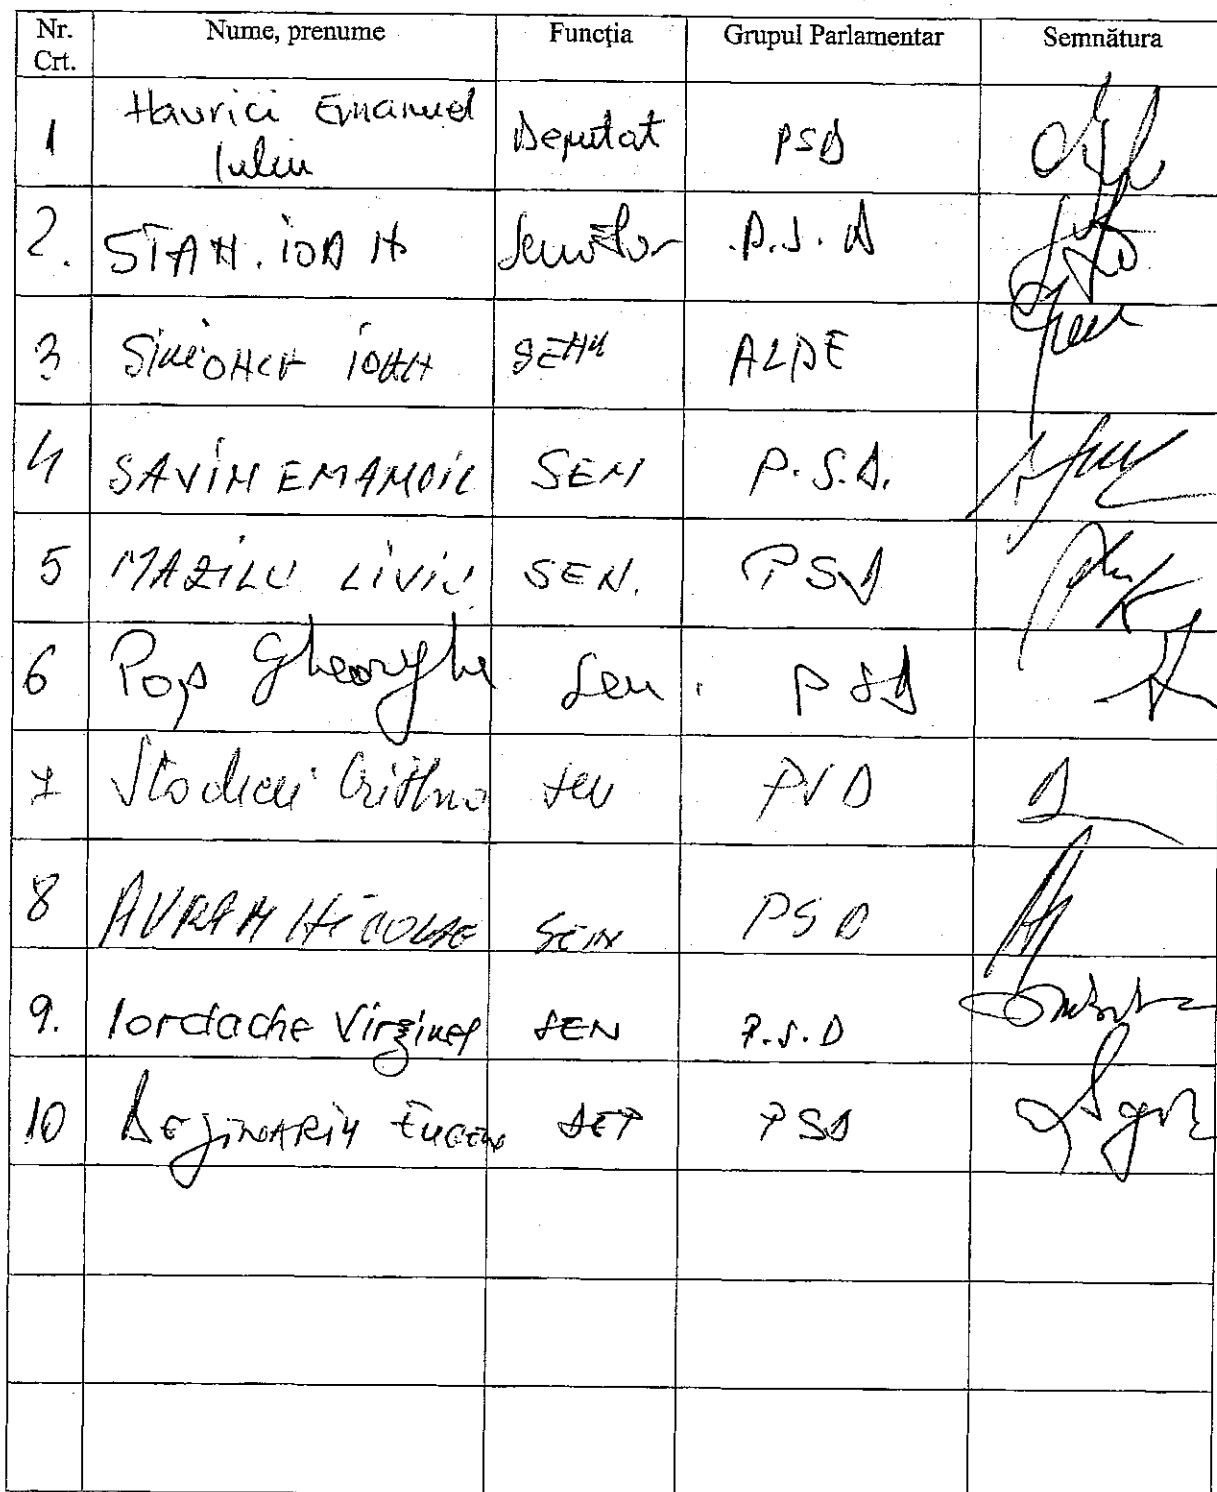 Nr. Crt. Nume, prenume Funcția Grupul Parlamentar Semnătura
1 Havrici Emanuel Iuliu Deputat PSD
2. STAN. iOAN Senator .P.S.D
3 SiMiONCA iOAN SEN ALDE
4 SAVIN EMANOIL SEN P.S.D.
5 MAZILU LIVIU SEN. PSD
6 Pop Gheorghe Sen. PSD
7 Sen PSD
8 AVRAM NICOLAE SEN PSD
9. Iordache Virginel SEN P.S.D
10 EUGEN PSD